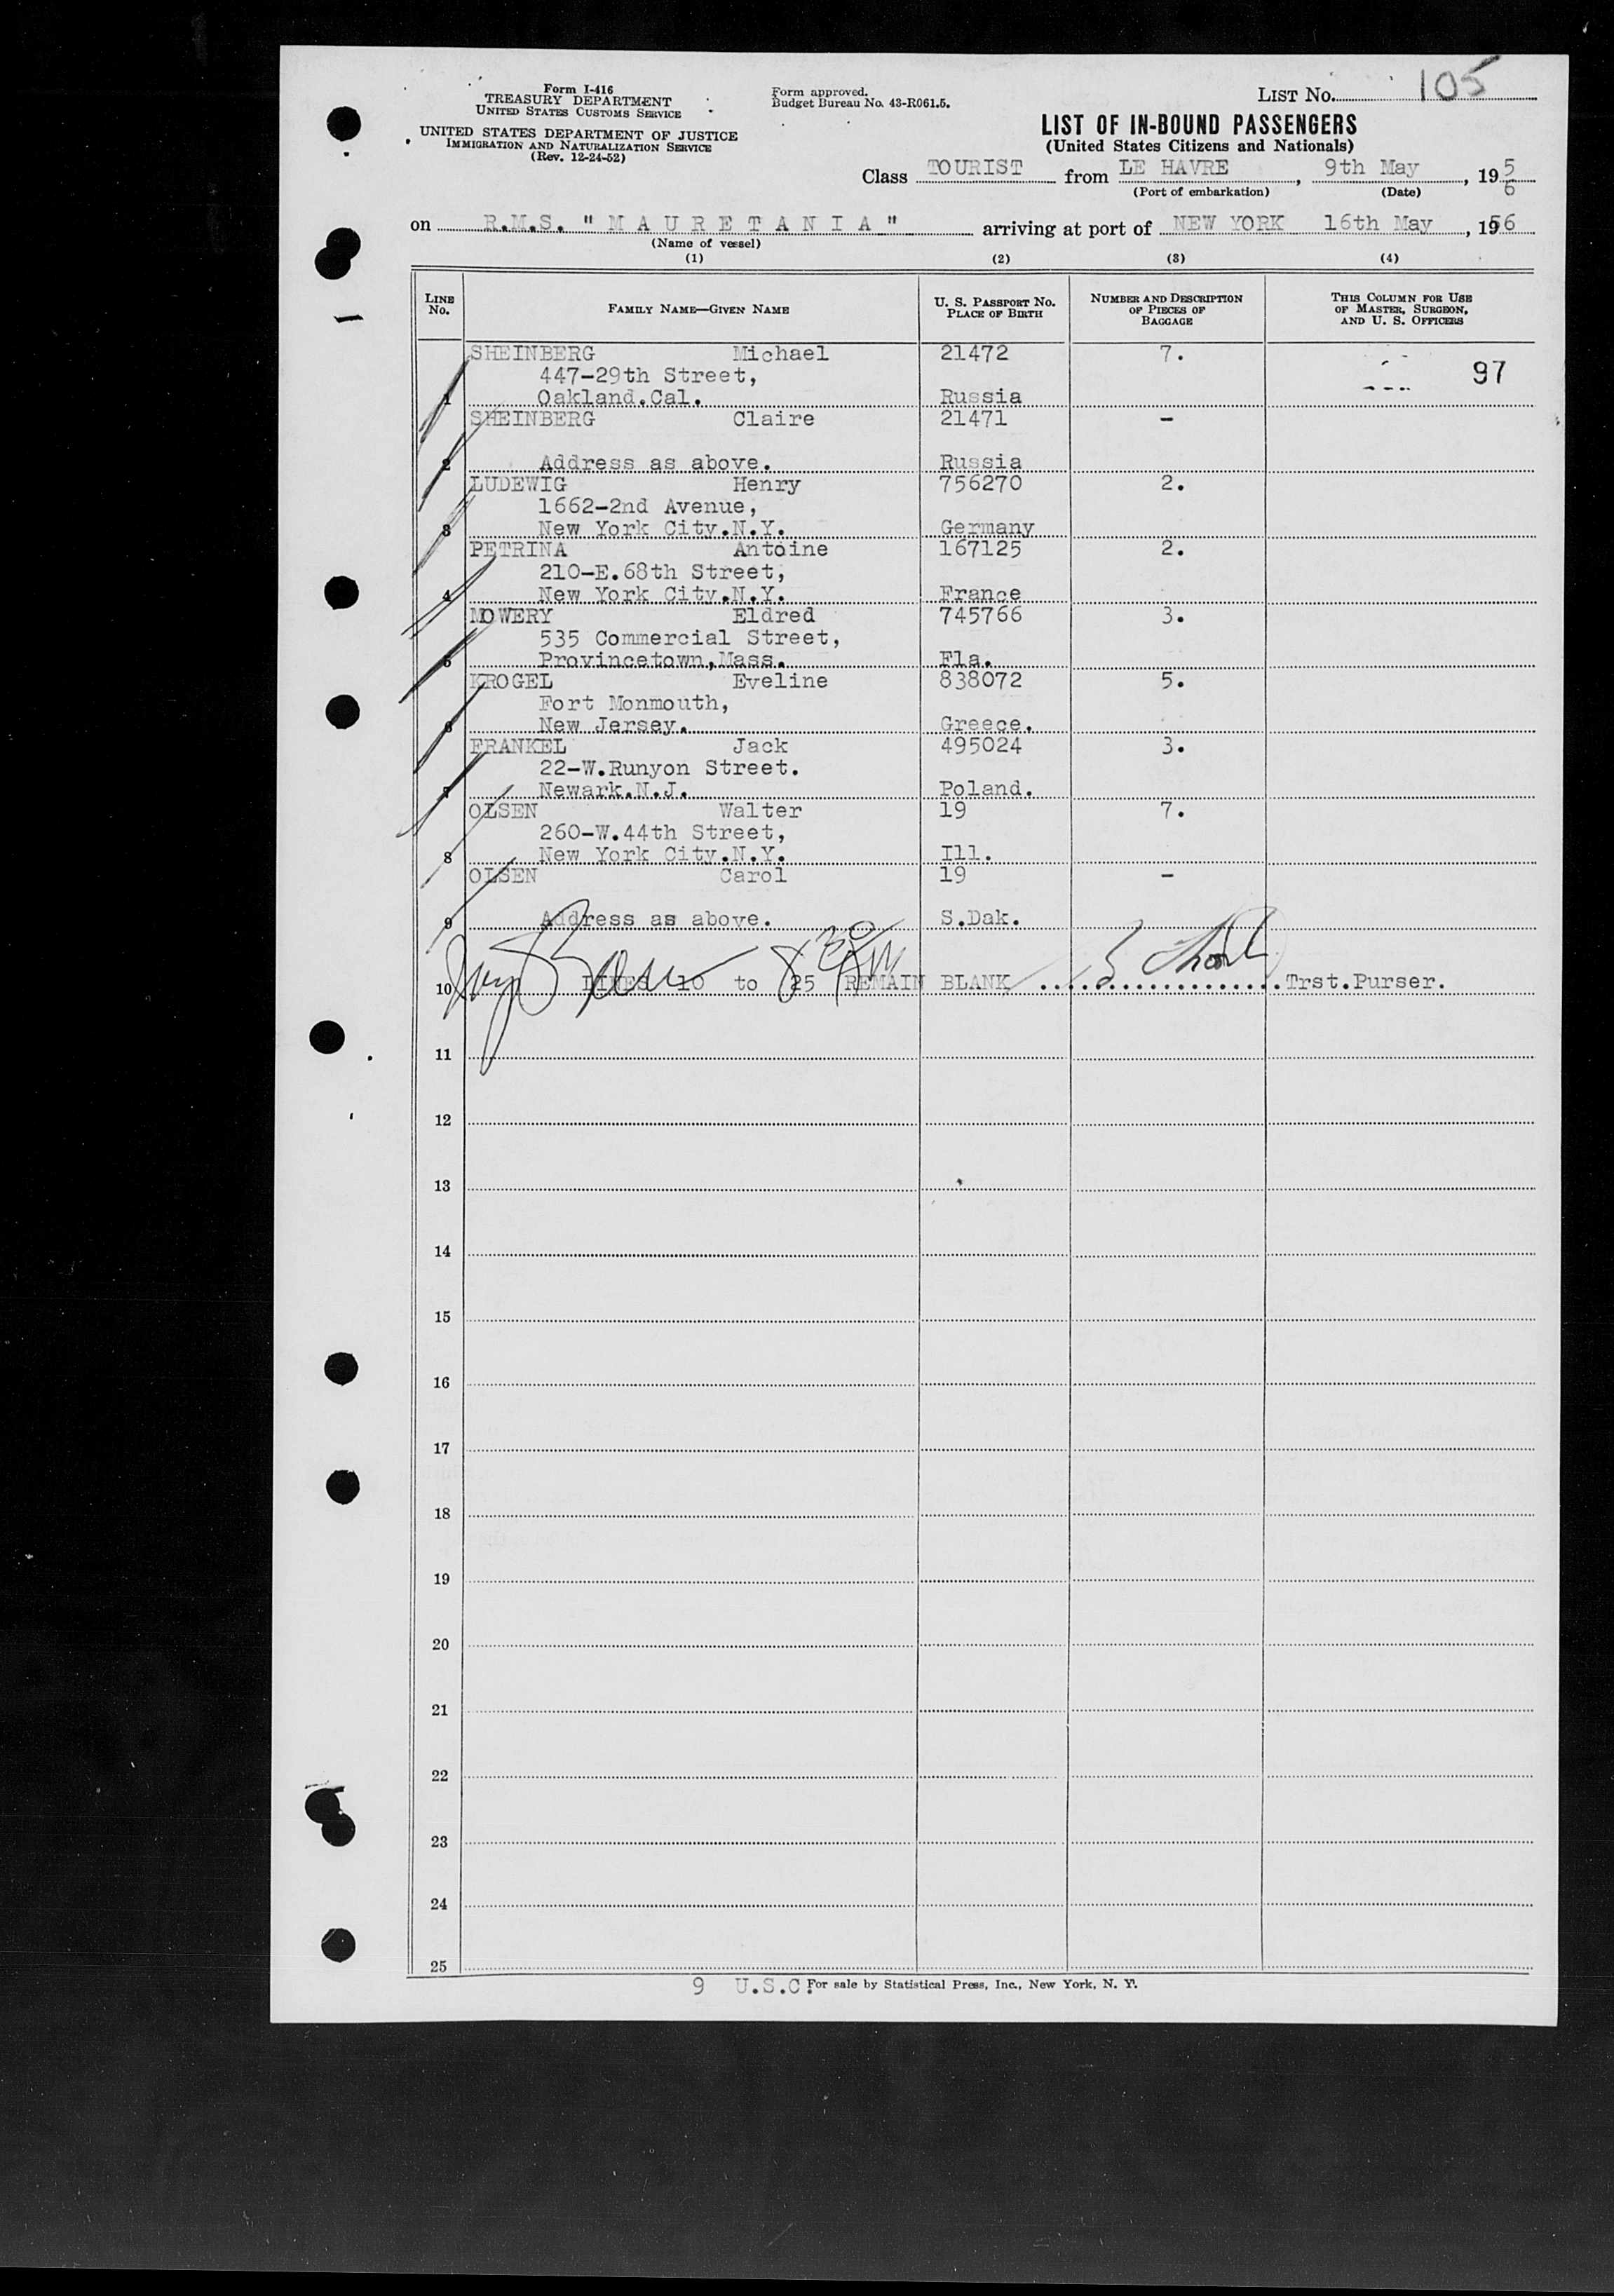 Form I-416
TREASURY DEPARTMENT
UNITED STATES CUSTOMS SERVICE
UNITED STATES DEPARTMENT OF JUSTICE
IMMIGRATION AND NATURALIZATION SERVICE
(Rev. 12-24-52)
Form approved.
Budget Bureau No. 43-R061.5.
LIST No. 105
LIST OF IN-BOUND PASSENGERS
(United States Citizens and Nationals)
Class TOURIST from LE HAVRE, 9th May, 195
6
(Port of embarkation) (Date)
on R.M.S. "MAURETANIA" arriving at port of NEW YORK 16th May, 1956
(Name of vessel)
(1) (2) (3) (4)
LINE No. FAMILY NAME—GIVEN NAME U. S. PASSPORT No. PLACE OF BIRTH NUMBER AND DESCRIPTION OF PIECES OF BAGGAGE THIS COLUMN FOR USE OF MASTER, SURGEON, AND U. S. OFFICERS
SHEINBERG Michael 21472 7.
447-29th Street, 97
1 Oakland.Cal. Russia
SHEINBERG Claire 21471 -
2 Address as above. Russia
LUDEWIG Henry 756270 2.
1662-2nd Avenue,
3 New York City.N.Y. Germany
PETRINA Antoine 167125 2.
210-E.68th Street,
4 New York City.N.Y. France
MOWERY Eldred 745766 3.
535 Commercial Street,
5 Provincetown,Mass. Fla.
KROGEL Eveline 838072 5.
Fort Monmouth,
6 New Jersey. Greece.
FRANKEL Jack 495024 3.
22-W.Runyon Street.
7 Newark.N.J. Poland.
OLSEN Walter 19 7.
260-W.44th Street,
8 New York City.N.Y. Ill.
OLSEN Carol 19 -
9 Address as above. S.Dak.
10 LINES 10 to 25 REMAIN BLANK ..................Trst.Purser.
11
12
13
14
15
16
17
18
19
20
21
22
23
24
25
9 U.S.C. For sale by Statistical Press, Inc., New York, N. Y.